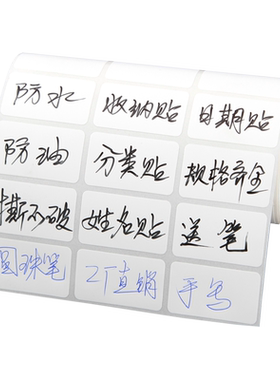 防水 收纳贴 日期贴
防油 分类贴 规格齐全
撕不破 姓名贴 送笔
圆珠笔 工厂直销 手写